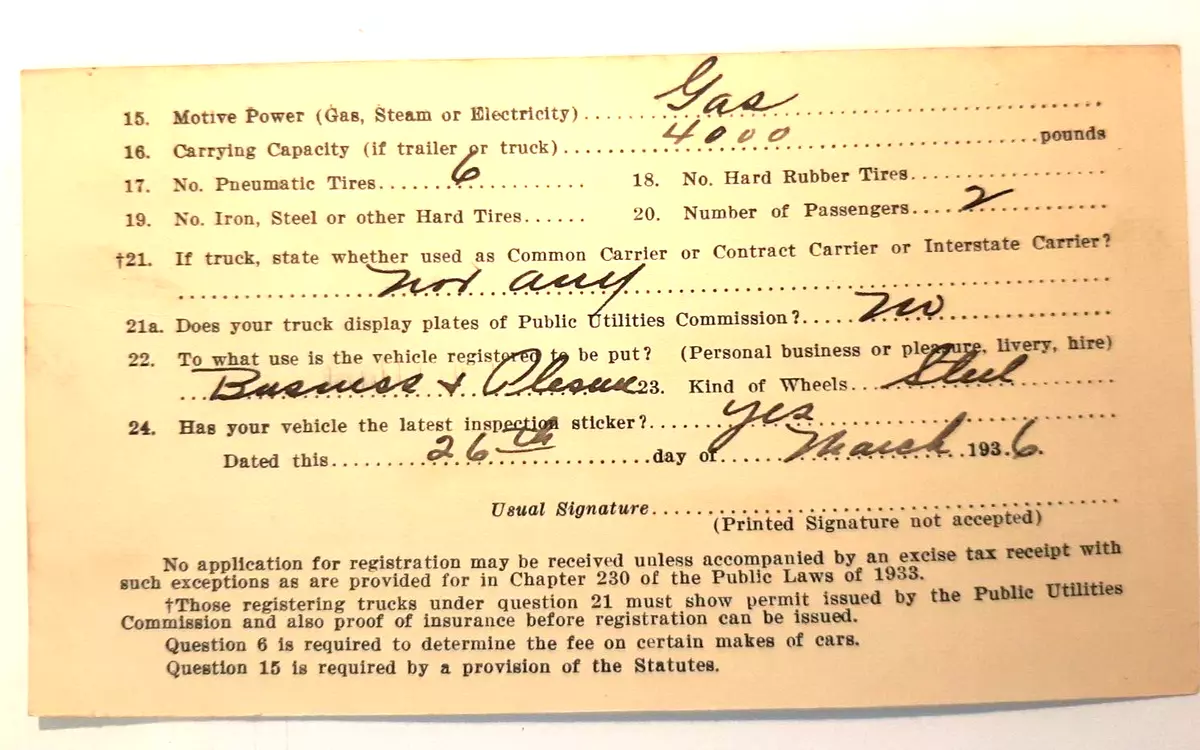 15. Motive Power (Gas, Steam or Electricity) Gas
16. Carrying Capacity (if trailer or truck) 4000 pounds
17. No. Pneumatic Tires 6 18. No. Hard Rubber Tires
19. No. Iron, Steel or other Hard Tires 20. Number of Passengers 2
†21. If truck, state whether used as Common Carrier or Contract Carrier or Interstate Carrier?
Not any
21a. Does your truck display plates of Public Utilities Commission? No
22. To what use is the vehicle registered to be put? (Personal business or pleasure, livery, hire)
Business & Plesure 23. Kind of Wheels Steel
24. Has your vehicle the latest inspection sticker? yes
Dated this 26th day of March 1936.
Usual Signature
(Printed Signature not accepted)
No application for registration may be received unless accompanied by an excise tax receipt with
such exceptions as are provided for in Chapter 230 of the Public Laws of 1933.
†Those registering trucks under question 21 must show permit issued by the Public Utilities
Commission and also proof of insurance before registration can be issued.
Question 6 is required to determine the fee on certain makes of cars.
Question 15 is required by a provision of the Statutes.